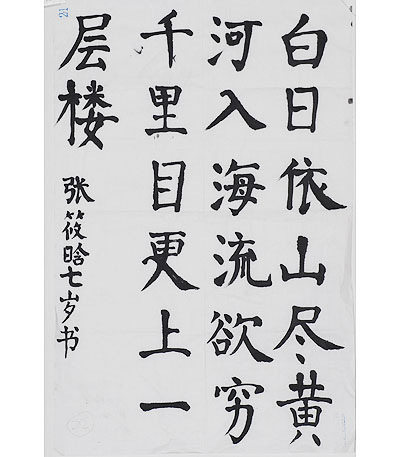 白日依山尽黄
河入海流欲穷
千里目更上一
层楼
张筱晗七岁书
21